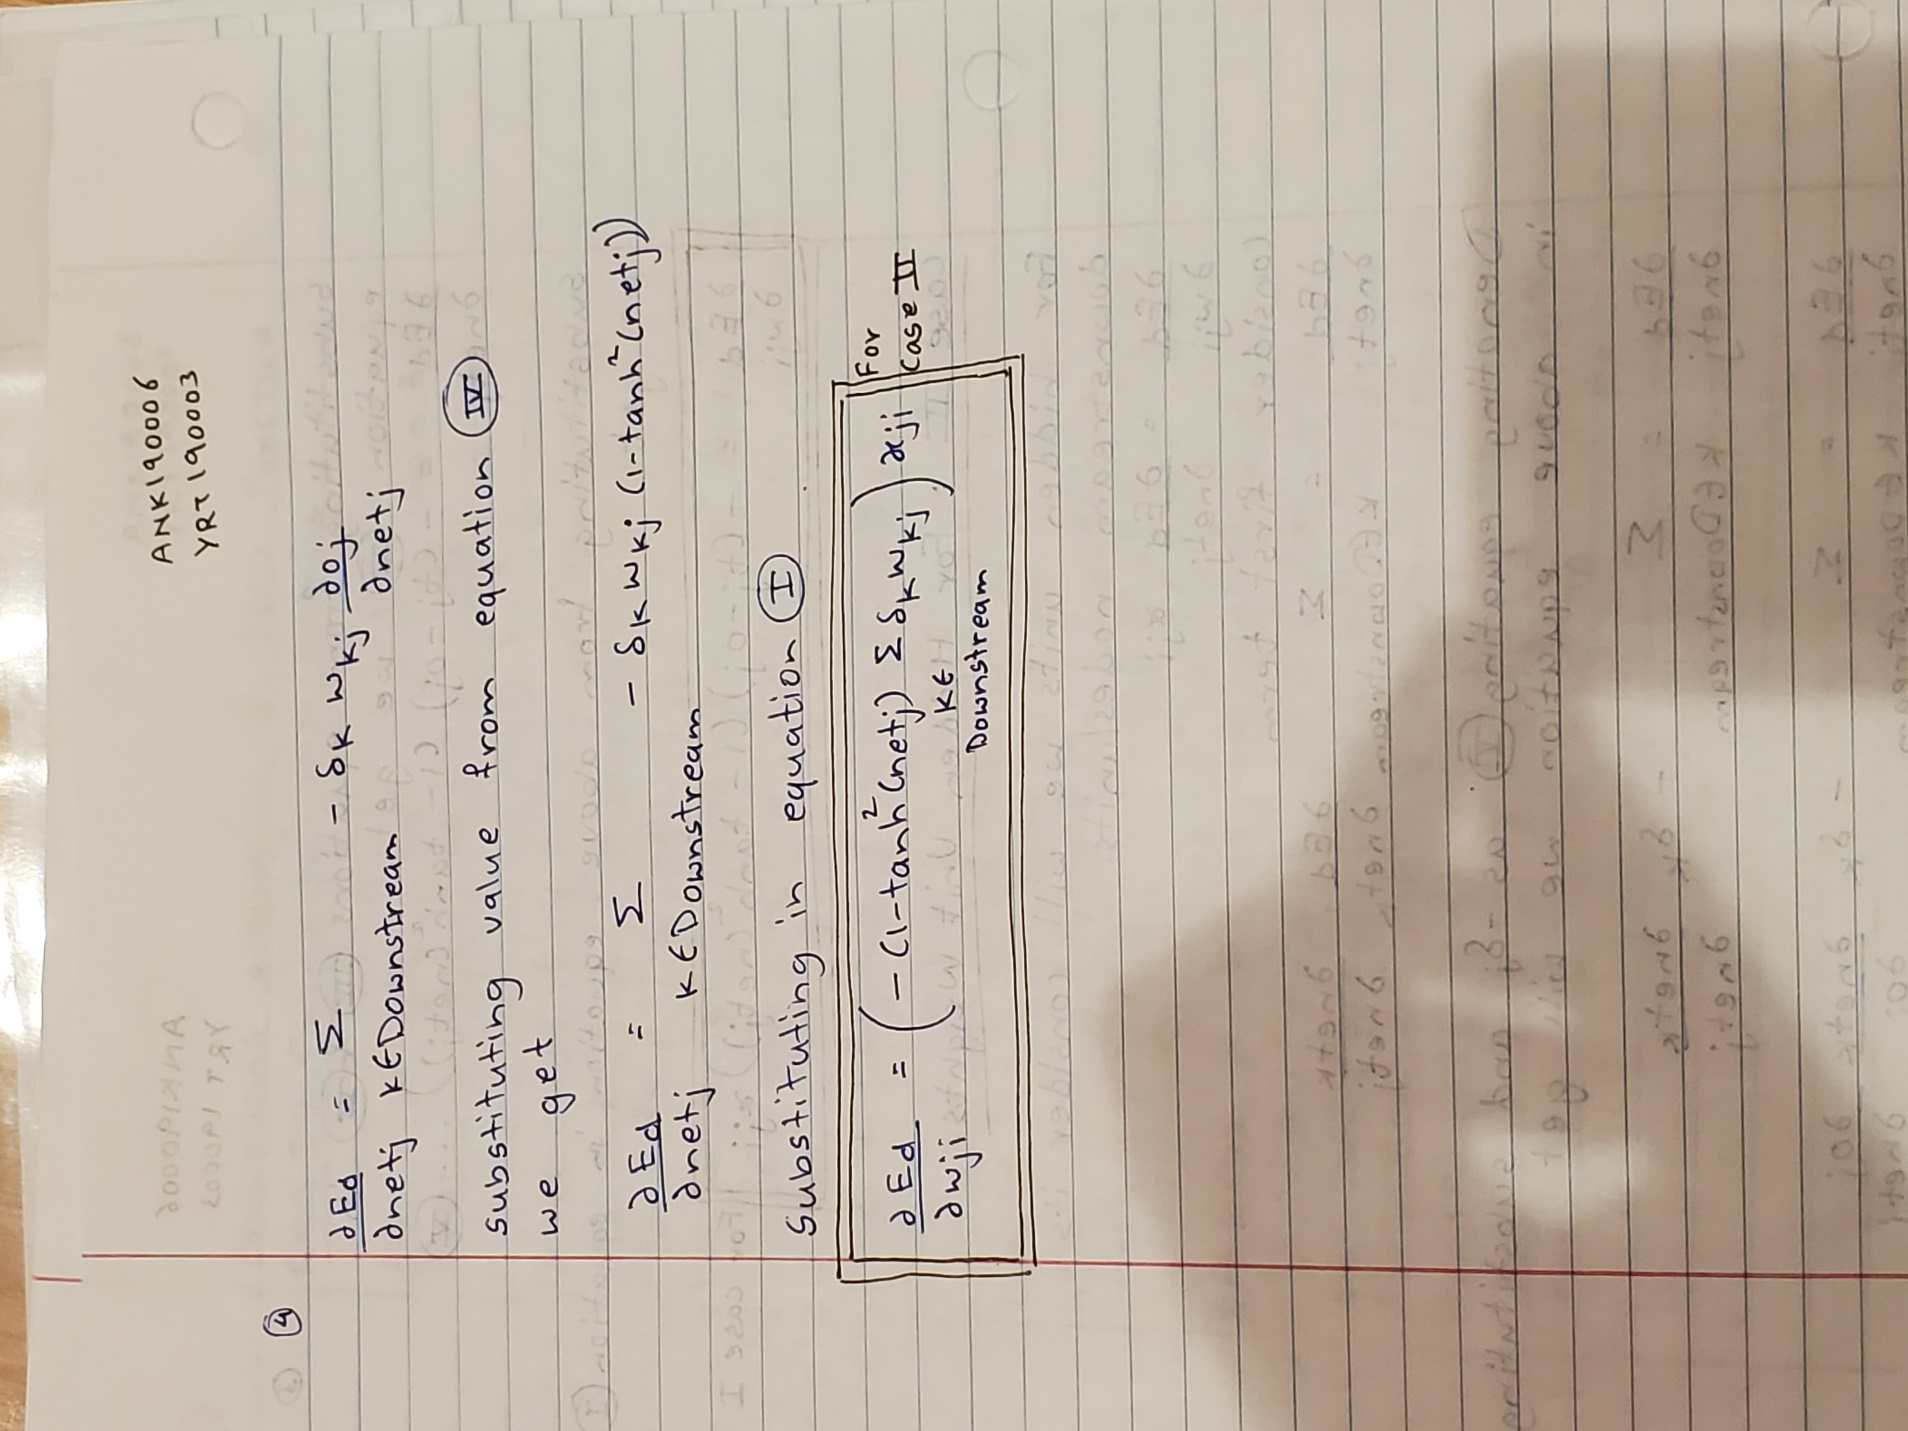 ANK190006
YRT190003
④
∂Ed/∂netj = Σ k∈Downstream - δk wkj ∂oj/∂netj
substituting value from equation Ⓘⓥ
we get
∂Ed/∂netj = Σ k∈Downstream - δk wkj (1-tanh²(netj))
Substituting in equation Ⓘ
∂Ed/∂wji = (-(1-tanh²(netj) Σ k∈ Downstream δk wkj) xji
For
Case II